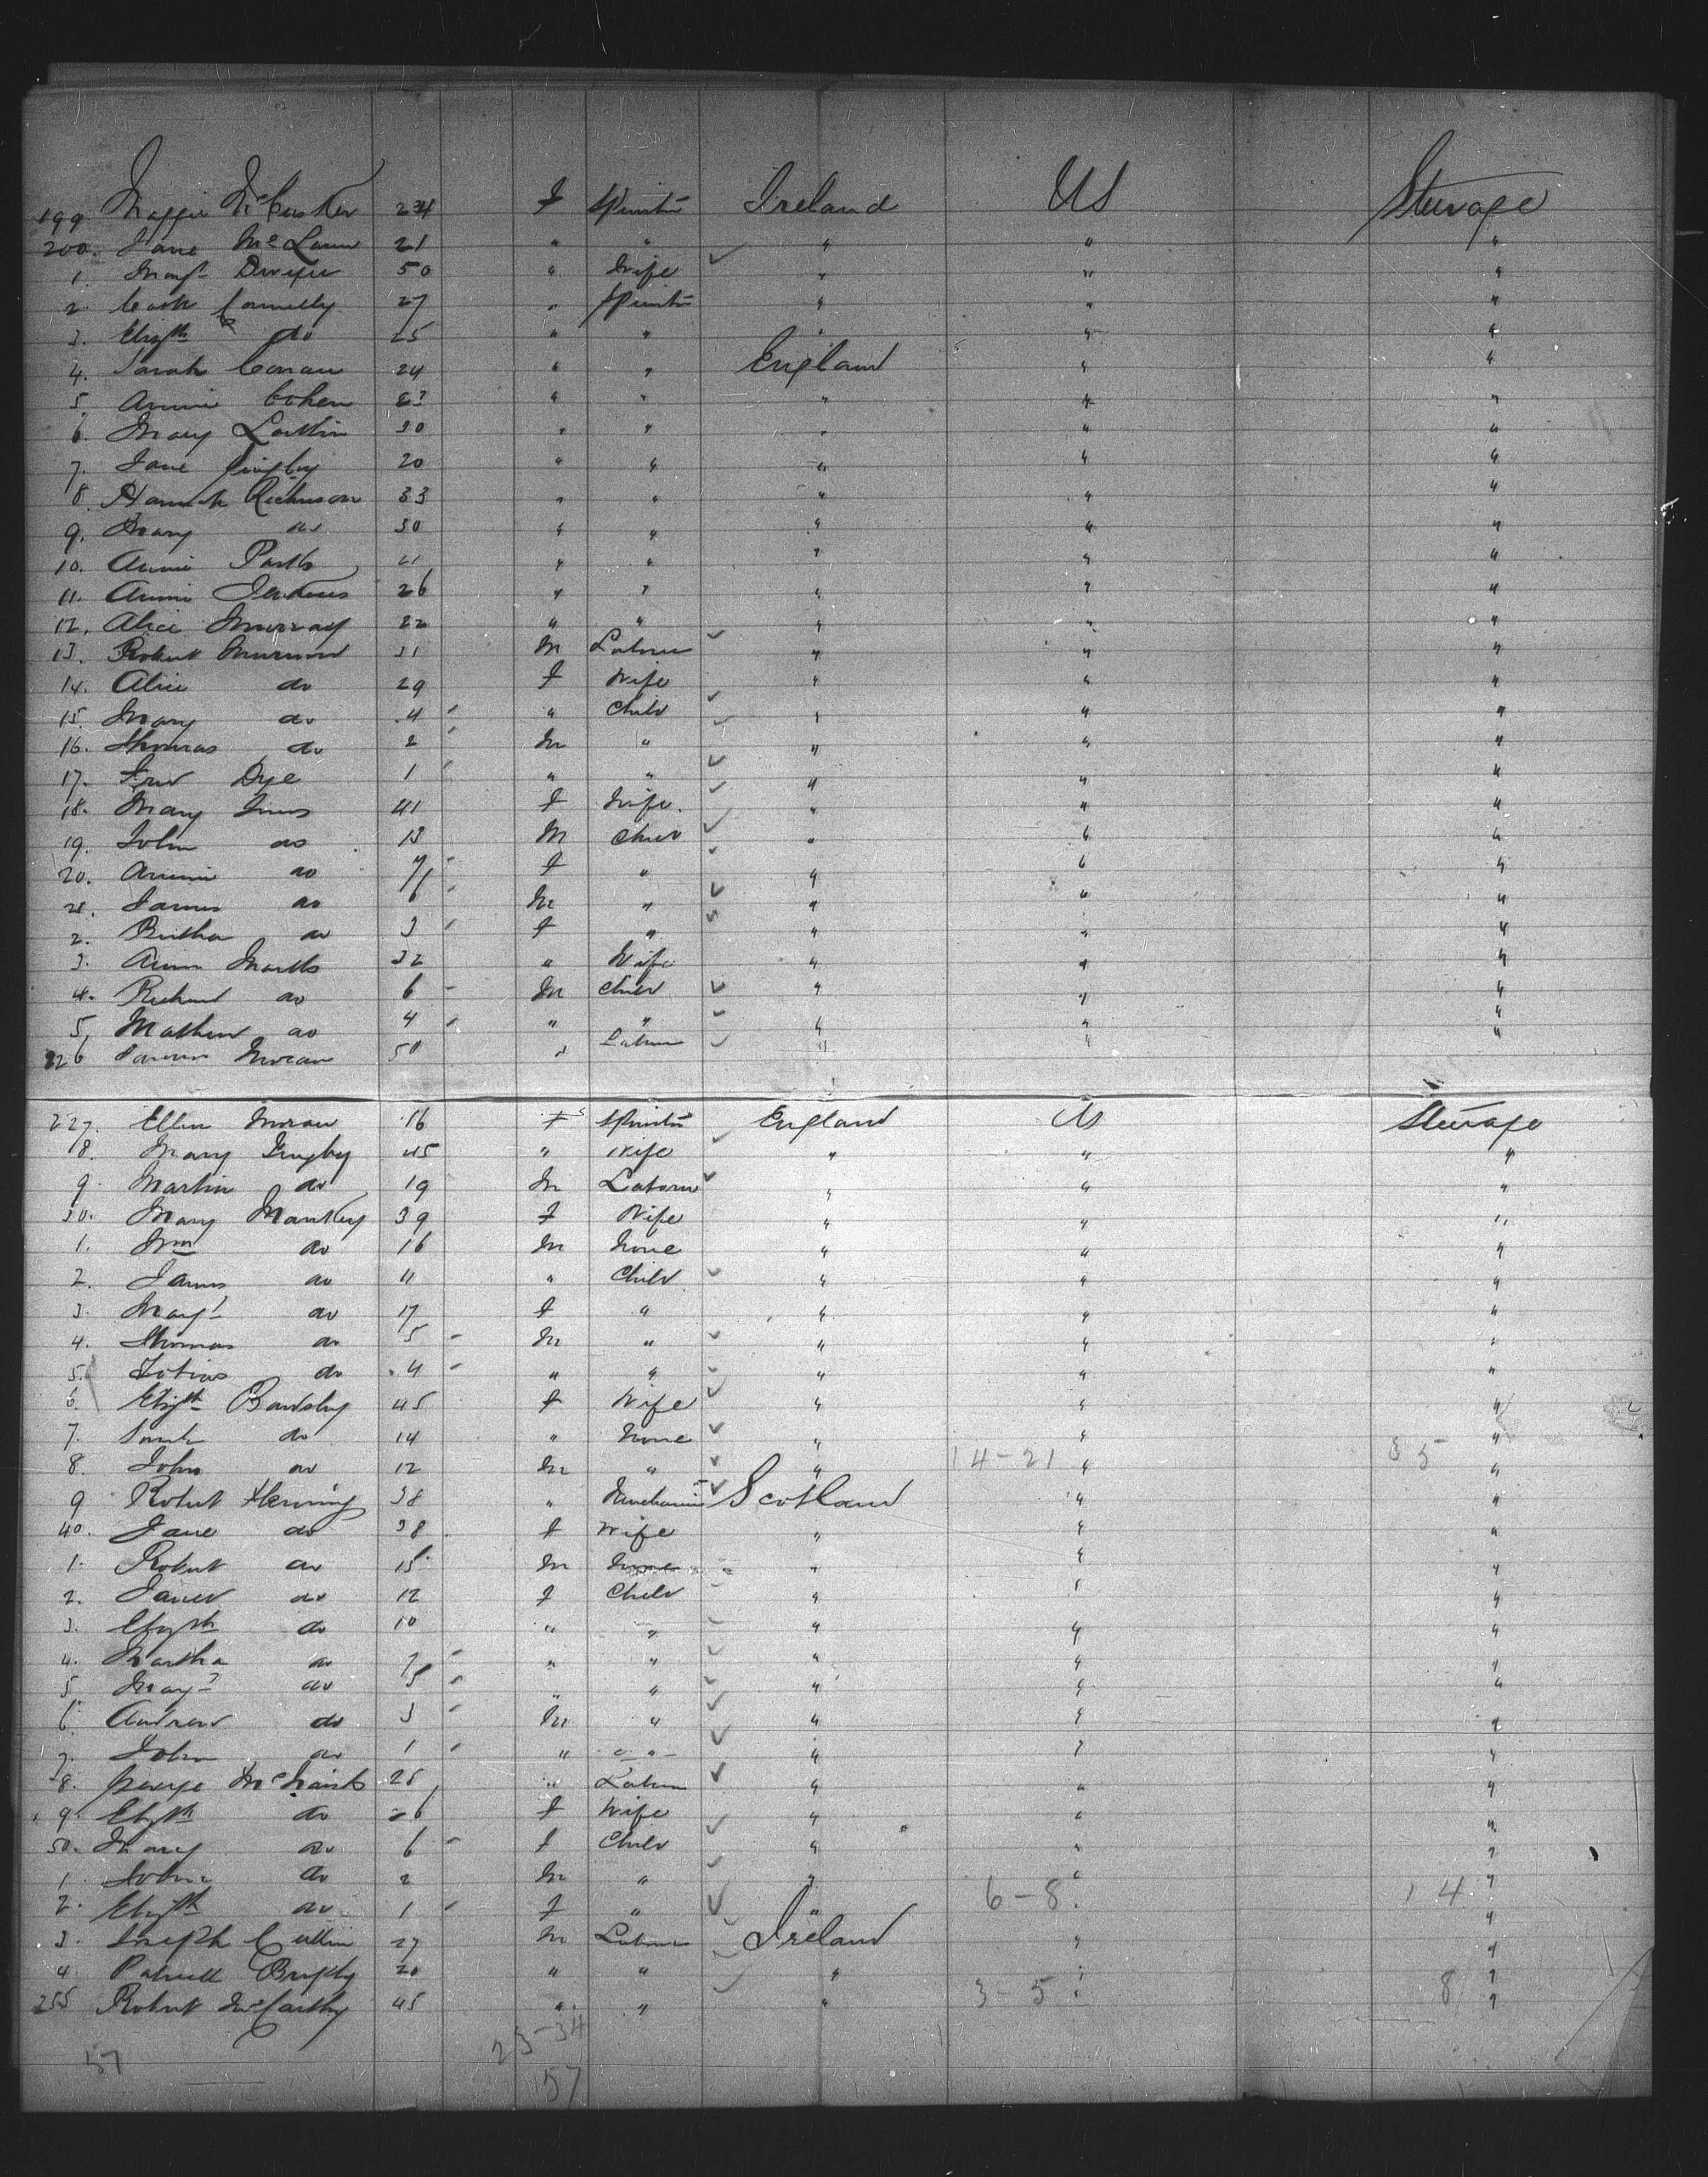 199 Maggie McCusker 24 F Spinstr Ireland US Steerage
200. Jane McLaun 21 " " " " "
1. Magt Dwyer 50 " Wife " " "
2. Cath Connelly 27 " Spinstr " " "
3. Elizth do 25 " " " " "
4. Sarah Conan 24 " " England " "
5. Annie Cohen 23 " " " " "
6. Mary Larkin 30 " " " " "
7. Jane 20 " " " " "
8. Hannah Richinson 33 " " " " "
9. Mary do 30 " " " " "
10. Annie Parks 21 " " " " "
11. Annie Jenkins 26 " " " " "
12. Alice Murray 22 " " " " "
13. Robert 31 M Labour " " "
14. Alice do 29 F Wife " " "
15. Mary do 4 " Child " " "
16. Thomas do 2 M " " " "
17. Fred Dye 1 " " " " "
18. Mary 41 F Wife. " " "
19. John do 13 M Child " " "
20. Annie do 7 F " " " "
21. James do 6 M " " " "
2. Bertha do 3 F " " " "
3. Ann Marks 32 " Wife " " "
4. Richard do 6 M Child " " "
5. Mathew do 4 " " " " "
226 Moran 50 " Labour " " "
227. Ellen Moran 16 F Spinstr England US Steerage
18. Mary 45 " Wife " " "
9. Martin do 19 M Labour " " "
30. Mary Mankey 39 F Wife " " "
1. Wm do 16 M None " " "
2. James do 11 " Child " " "
3. Magt do 17 F " " " "
4. Thomas do 5 M " " " "
5. Tobias do 4 " " " " "
6. Elizth Bardsley 45 F Wife " " "
7. Sarah do 14 " None " " "
8. John do 12 M " " 14-21 " 35 "
9 Robert Fleming 38 " Scotland " "
40. Jane do 38 F Wife " " "
1. Robert do 15 M None " " "
2. Janet do 12 F Child " " "
3. Elizth do 10 " " " " "
4. Martha do 7 " " " " "
5 Magt do 5 " " " " "
6. Andrew do 3 M " " " "
7. John do 1 " " " " "
8. George 25 " Labour " " "
9. Elizth do 26 F Wife " " "
50. Mary do 6 F Child " " "
1. John do 2 M " " " "
2. Elizth do 1 F " " 6-8. 14 "
3. Joseph Cullin 27 M Labour Ireland " "
4 Patrick 20 " " " " "
255 Robert McCarthy 45 " " " 3-5 " 8 "
57 23-34
57